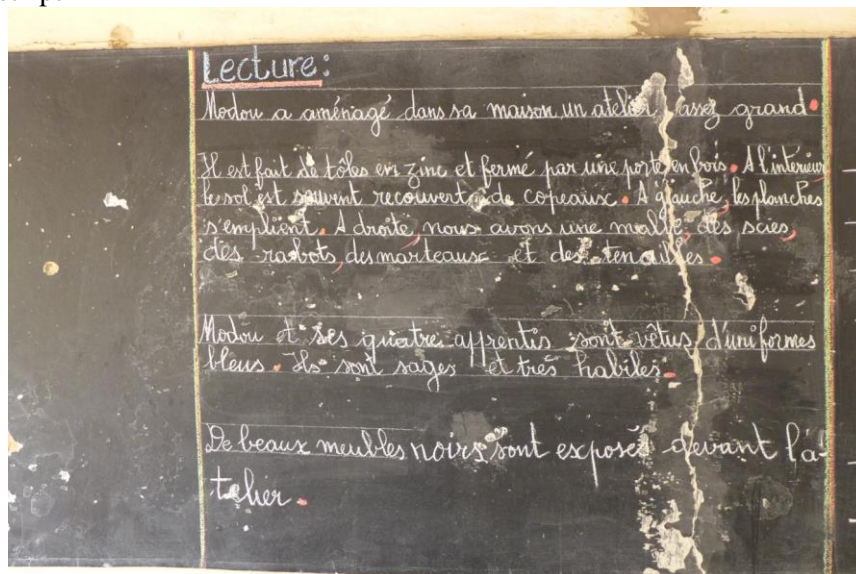 Lecture:
Modou a aménagé dans sa maison, un atelier, assez grand.
Il est fait de tôles en zinc et fermé par une porte en bois. A l'intérieur
le sol est souvent recouvert de copeaux. A gauche, les planches
s'empilent. A droite, nous avons une malle, des scies,
des rabots, des marteaux et des tenailles.
Modou et ses quatre apprentis sont vêtus d'uniformes
bleus. Ils sont sages et très habiles.
De beaux meubles noirs sont exposés devant l'a-
telier.